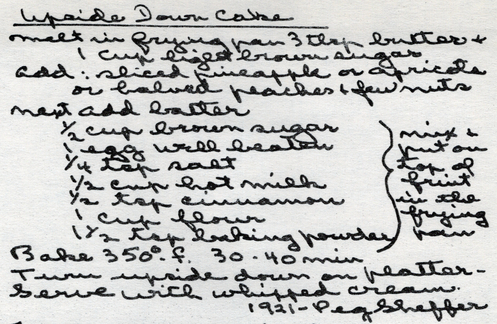 Upside Down Cake
melt in frying pan 3 tbsp butter +
1 cup light brown sugar
add: sliced pineapple or apricots
or halved peaches + few nuts
next add batter
1/2 cup brown sugar
1 egg well beaten
1/4 tsp salt
1/2 cup hot milk
1/2 tsp cinnamon
1 cup flour
1 1/2 tsp baking powder
mix + put on top of fruit in the frying pan
Bake 350°. f. 30-40 min
Turn upside down on platter-
Serve with whipped cream.
1921 - Peg Sheffer